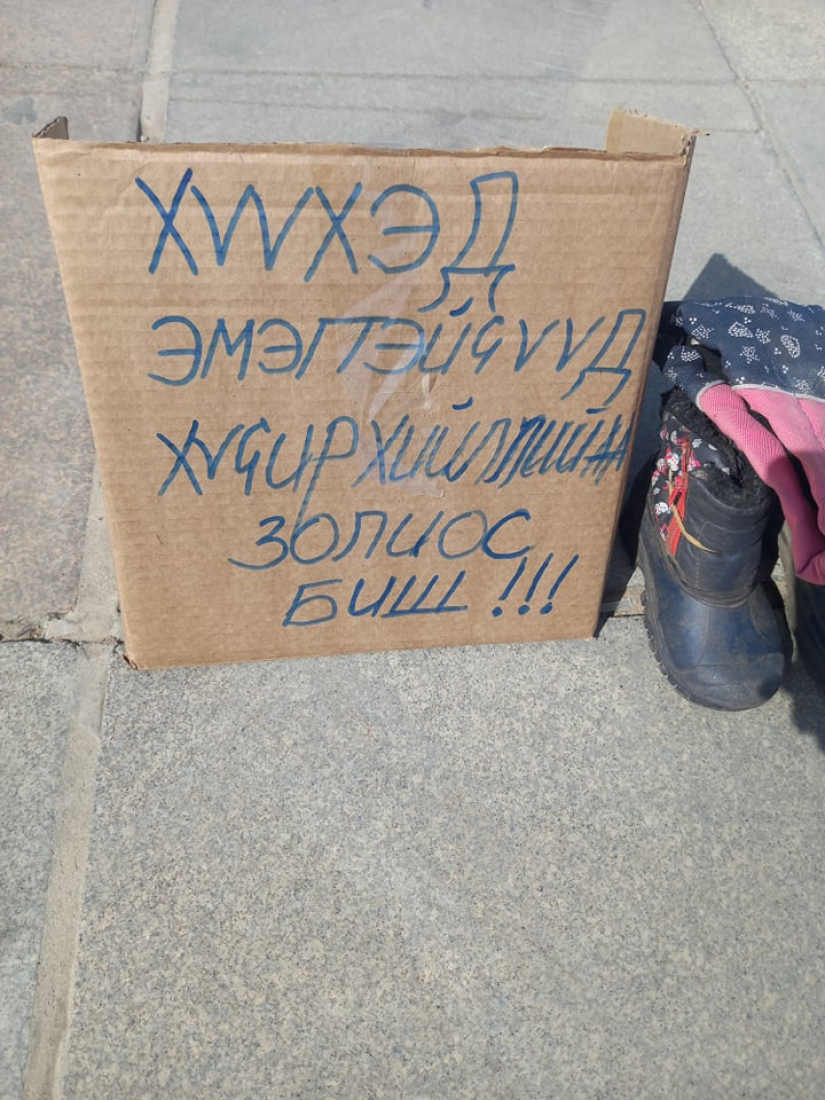 ХҮҮХЭД
ЭМЭГТЭЙЧҮҮД
ХҮЧИРХИЙЛЛИЙН
ЗОЛИОС
БИШ!!!